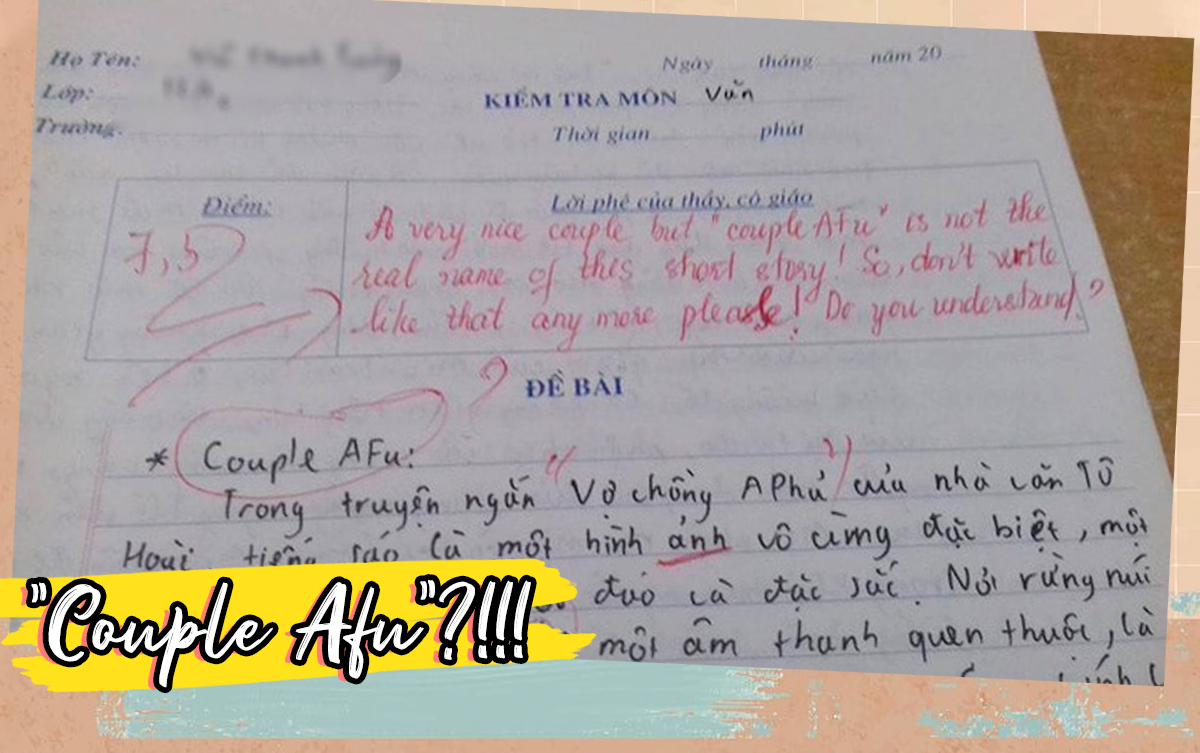 Họ Tên:
Ngày tháng năm 20
Lớp:
KIỂM TRA MÔN Văn
Trường:
Thời gian phút
Điểm:
7,5
Lời phê của thầy, cô giáo
A very nice couple but "couple AFu" is not the
real name of this short story! So, don't write
like that any more please! Do you understand?
ĐỀ BÀI
* Couple AFu:
Trong truyện ngắn "Vợ chồng A Phủ" của nhà văn Tô
Hoài tiếng sáo là một hình ảnh vô cùng đặc biệt, một
đáo và đặc sắc. Nơi rừng núi
một âm thanh quen thuộc, là
"Couple Afu"?!!!